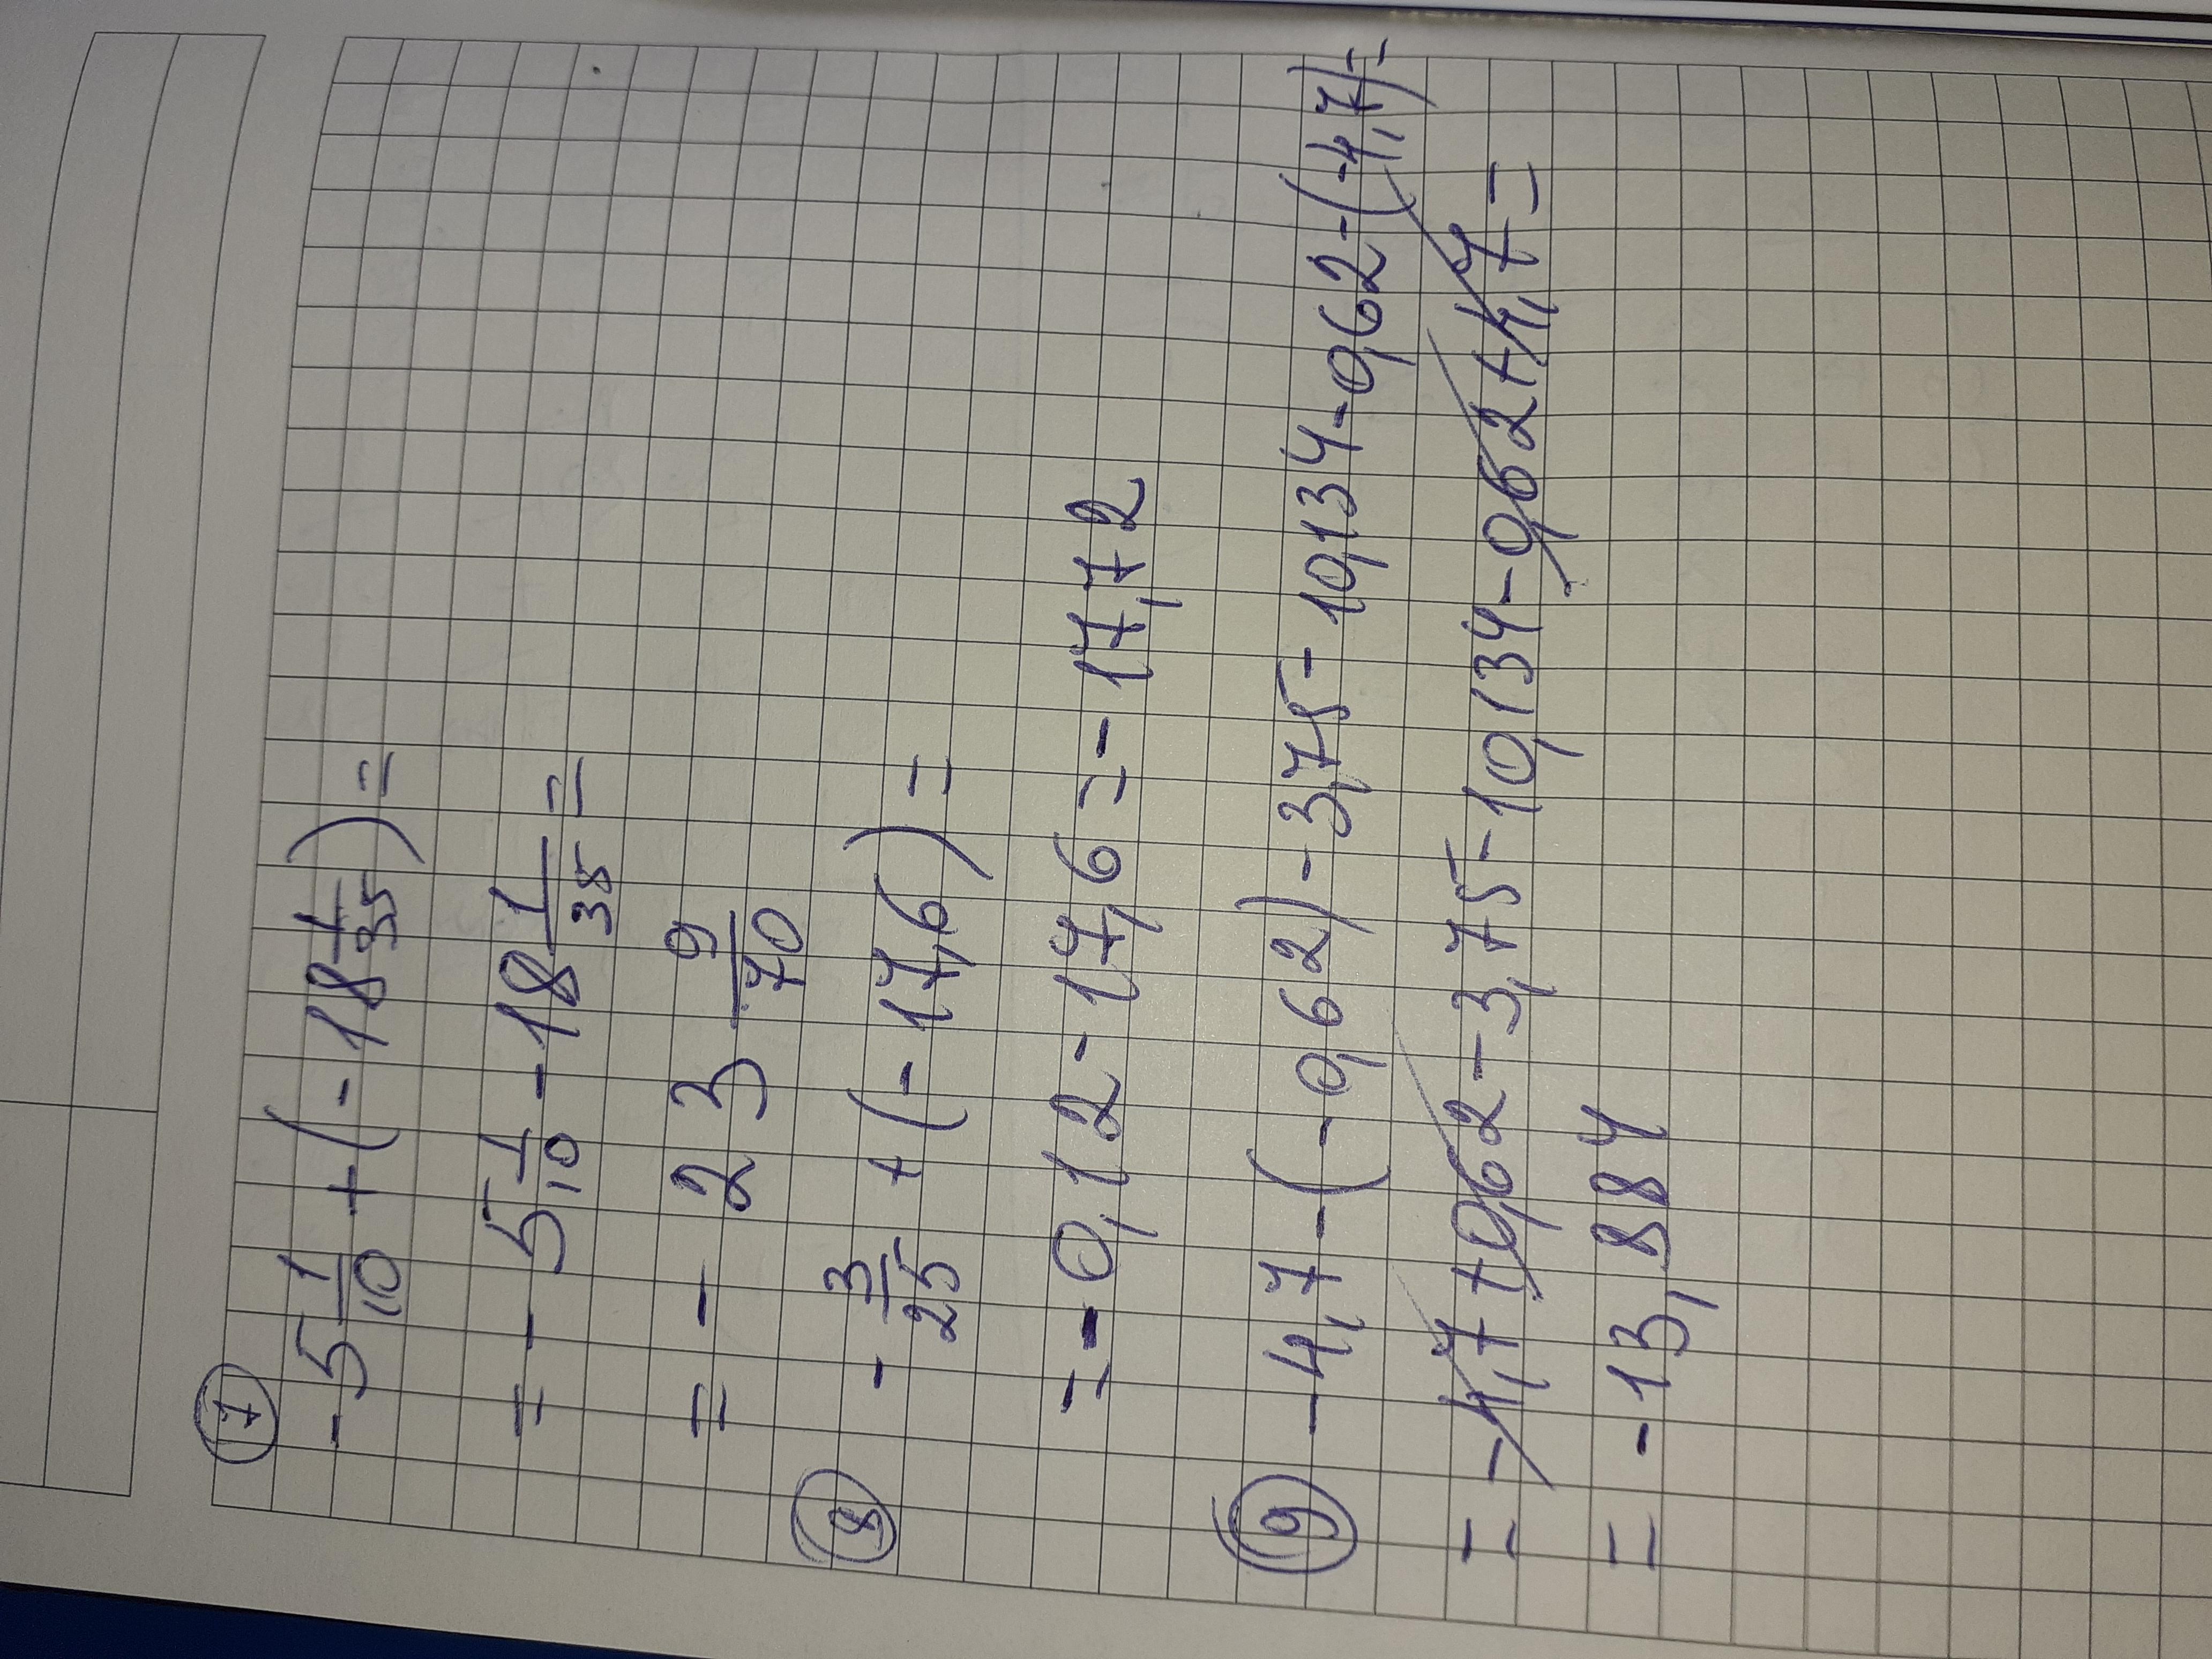 7
-5 1/10 + (-18 1/35) =
= -5 1/10 - 18 1/35 =
= - 23 9/70
8
- 3/25 + (-17,6) =
= -0,12 - 17,6 = -17,72
9 -4,7-(-0,962)-3,75-10,134-0,962-(-4,7)=
= -4,7+0,962-3,75-10,134-0,962+4,7=
= -13,884